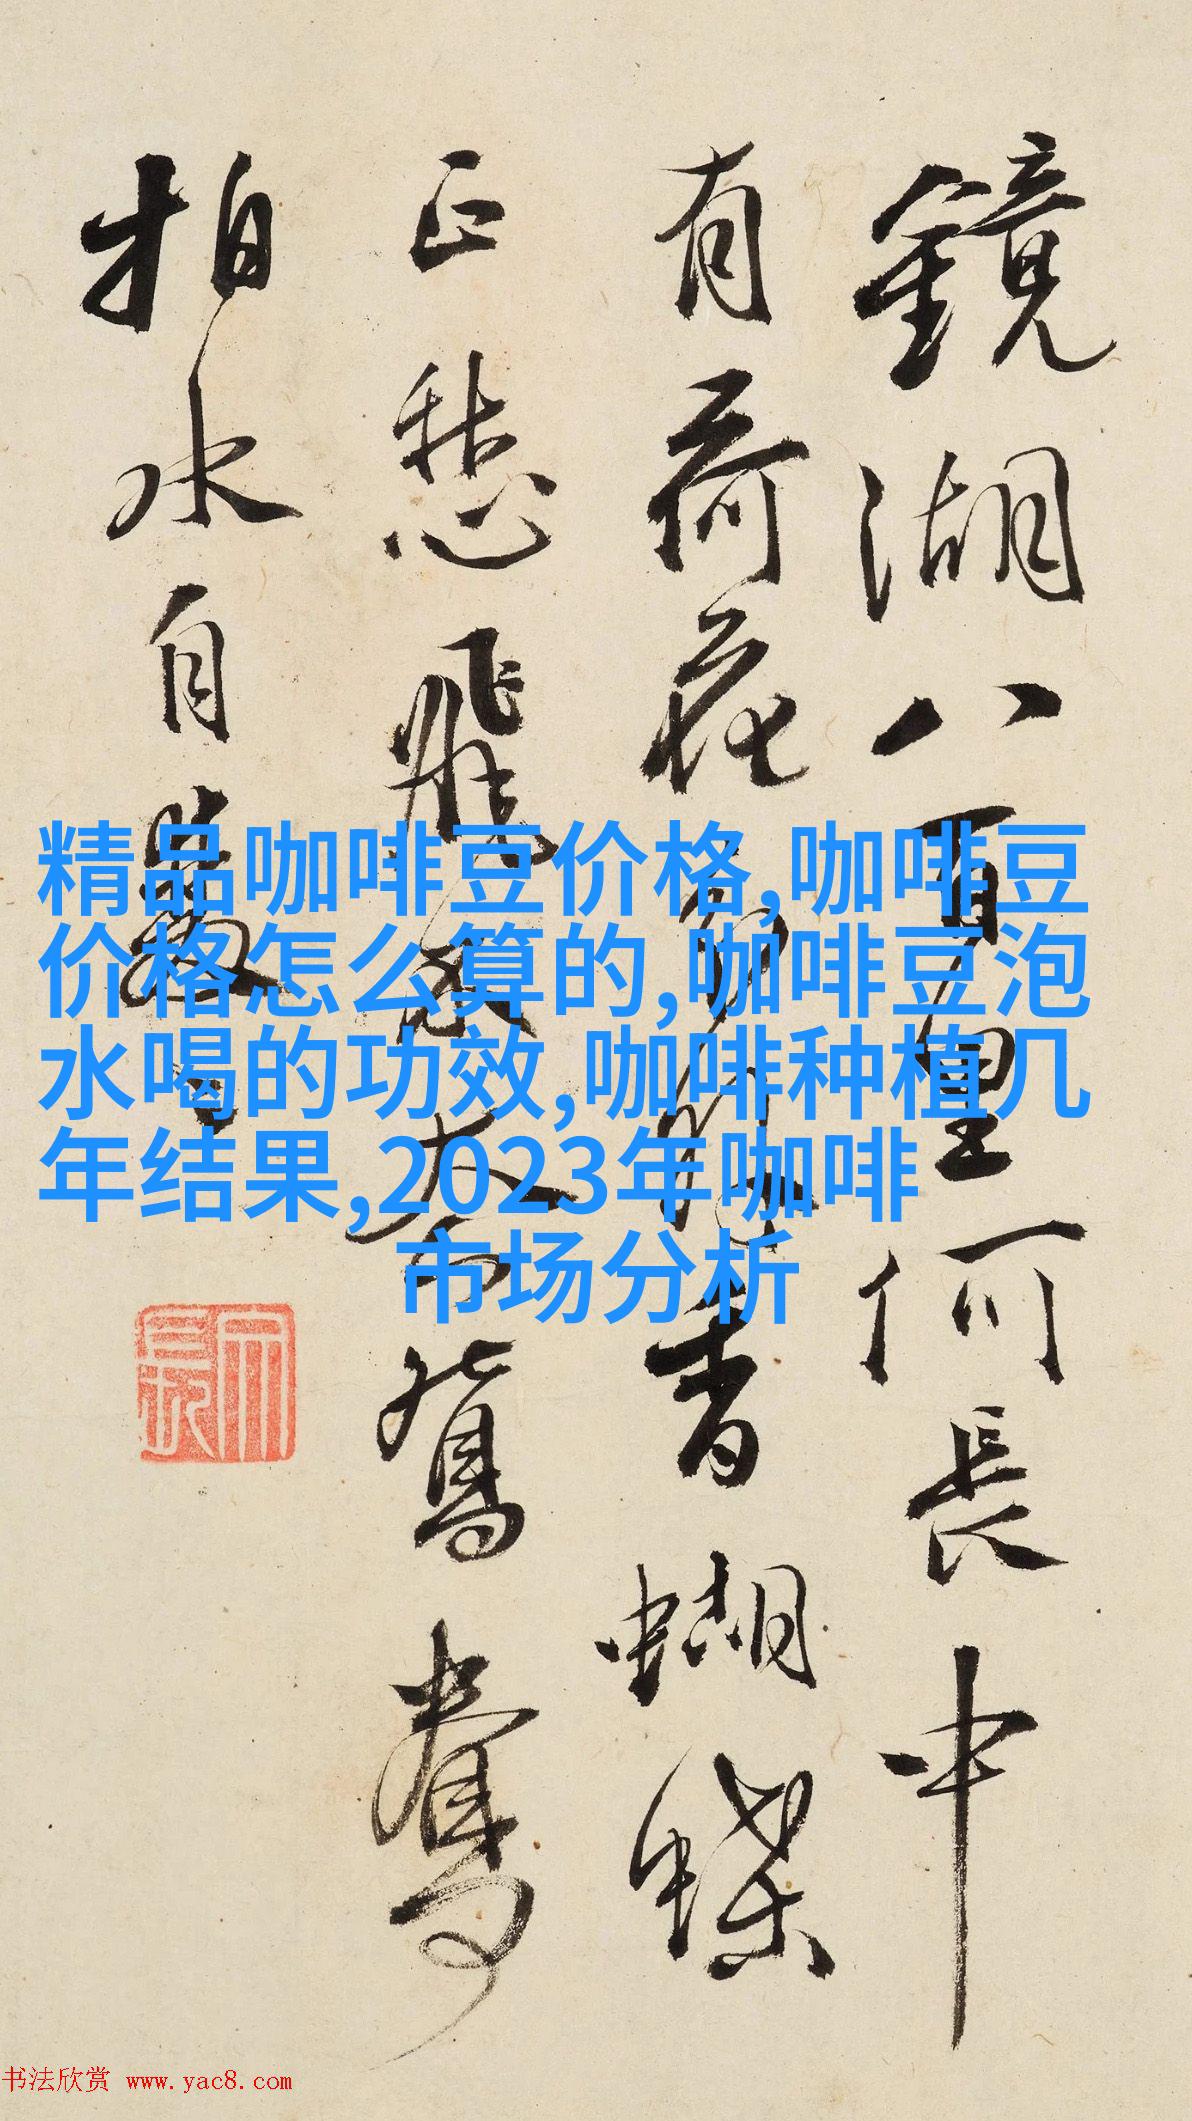 鏡湖八百里何長中
有荷花
香蝴蝶
正愁飛
大
鴛鴦
拍水自
精品咖啡豆价格,咖啡豆
价格怎么算的,咖啡豆泡
水喝的功效,咖啡种植几
年结果,2023年咖啡
市场分析
书法欣赏 www.yac8.com